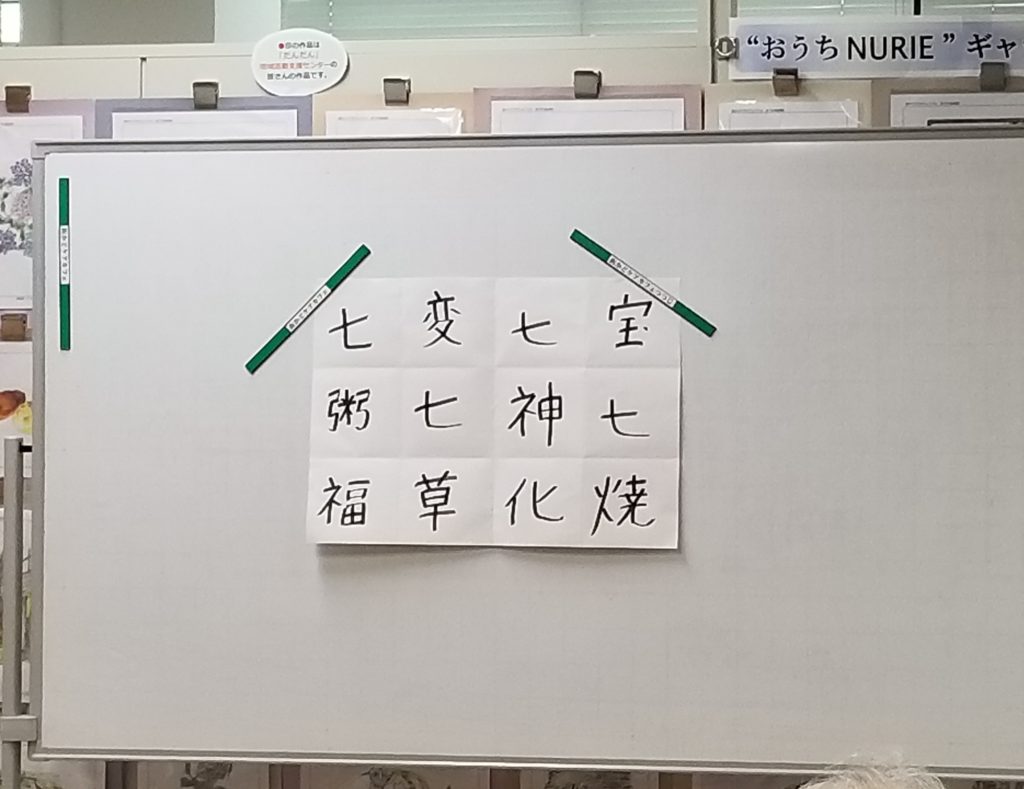 ●印の作品は
「だんだん」
地域活動支援センターの
皆さんの作品です。
“おうち NURIE ” ギャ
七 変 七 宝
粥 七 神 七
福 草 化 焼